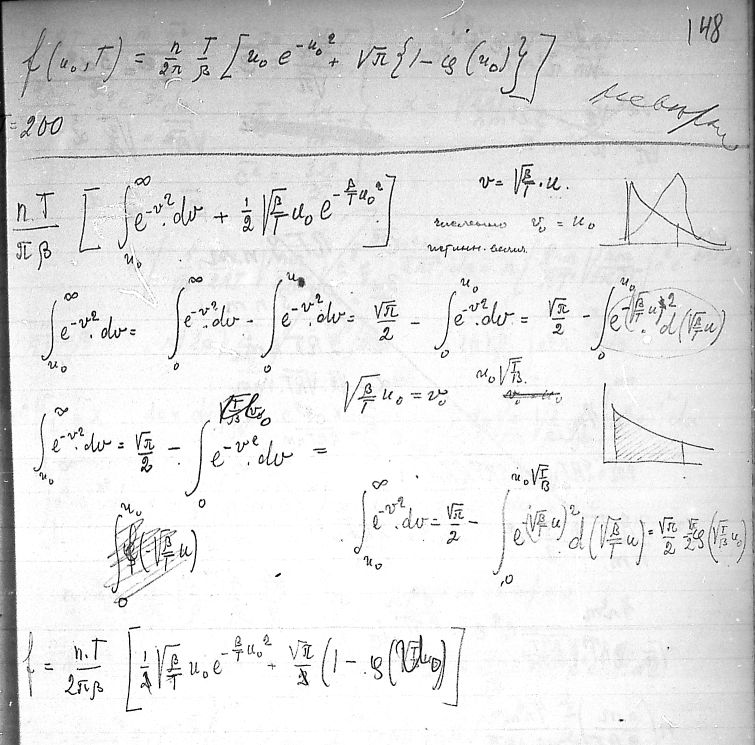 148
f(u₀, T) = n/2π T/β [u₀ e^{-u₀²} + √π {1 - φ(u₀)}]
неверно
T = 200
n.T/πβ [∫_{u₀}^{∞} e^{-v²}.dv + 1/2 √(β/T) u₀ e^{-β/T u₀²}]
v = √(β/T).u.
численно v₀ = u₀
∫_{u₀}^{∞} e^{-v²}.dv = ∫_{0}^{∞} e^{-v²}.dv - ∫_{0}^{u₀} e^{-v²}.dv = √π/2 - ∫_{0}^{u₀} e^{-v²}.dv = √π/2 - ∫_{0}^{u₀} e^{-(√(β/T) u)²}.d(√(β/T) u)
√(β/T) u₀ = v₀ u₀√(T/β)
v₀ = u₀
∫_{u₀}^{∞} e^{-v²}.dv = √π/2 - ∫_{0} e^{-v²}.dv =
∫_{0}^{u₀} (-√(β/T) u)
∫_{u₀}^{∞} e^{-v²}.dv = √π/2 - ∫_{0}^{u₀√(T/β)} e^{-(√(β/T) u)²} d(√(β/T) u) = √π/2 √π/2 φ(√(T/β) u₀)
f = n.T/2πβ [1/2 √(β/T) u₀ e^{-β/T u₀²} + √π/2 (1 - φ(√ u₀)]